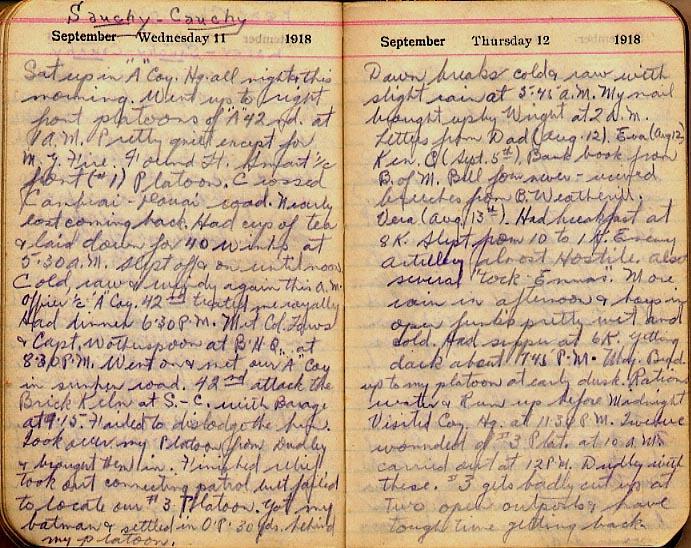 Sauchy-Cauchy
September Wednesday 11 1918
Sat up in "A" Coy. Hq. all night & this
morning. Went up to right
font platoons of "A" 42nd. at
1 A.M. Pretty quiet except for
M. G. Fire. Found Lt. Smart i/c
front (#1) Platoon. Crossed
Cambrai - road. Nearly
lost coming back. Had cup of tea
& laid down for 40 winks at
5:30 a.m. Slept off & on until noon
Cold, raw & windy again this A.M.
Officer i/c "A" Coy. 42nd treated me royally
Had dinner 6:30 P.M. Met Col. Ewing
& Capt. Wotherspoon at B.H.Q. at
8:30 P.M. Went on & met our "A" Coy
in sunken road. 42nd attack the
Brick Kiln at S.-C. with Barage
at 9:15. Failed to dislodge the hun.
Took over my Platoon from Dudley
& brought them in. Finished relief
took out connecting patrol but failed
to locate our #3 Platoon. Got my
batman & settled in O.P. 30 yds. behind
my platoon.
September Thursday 12 1918
Dawn breaks cold & raw with
slight rain at 5:45 A.M. My mail
brought up by Wright at 2 A.M.
Letters from Dad (Aug. 12). Eva (Aug 12)
Ken. C (Sept. 5th). Bank book from
B. of M. Bill for never-received
breeches from B. Weatherill.
Vera (Aug 13th). Had breakfast at
8K. Slept from 10 to 1 K. Enemy
artillery almost Hostile. also
several "Tock-Emmas". More
rain in afternoon & boys in
open funks pretty wet and
cold. Had supper at 6K. Getting
dark about 7:45 P.M. Wdg. Bgd.
up to my platoon at early dusk. Rations
water & Rum up before Midnight
Visited Coy. Hq. at 11:30 P.M. Twelve
wounded of #3 Plat. at 10 a.m.
carried out at 12 P.M. Dudley with
these. #3 gets badly cut up at
two open outposts & have
tough time getting back.